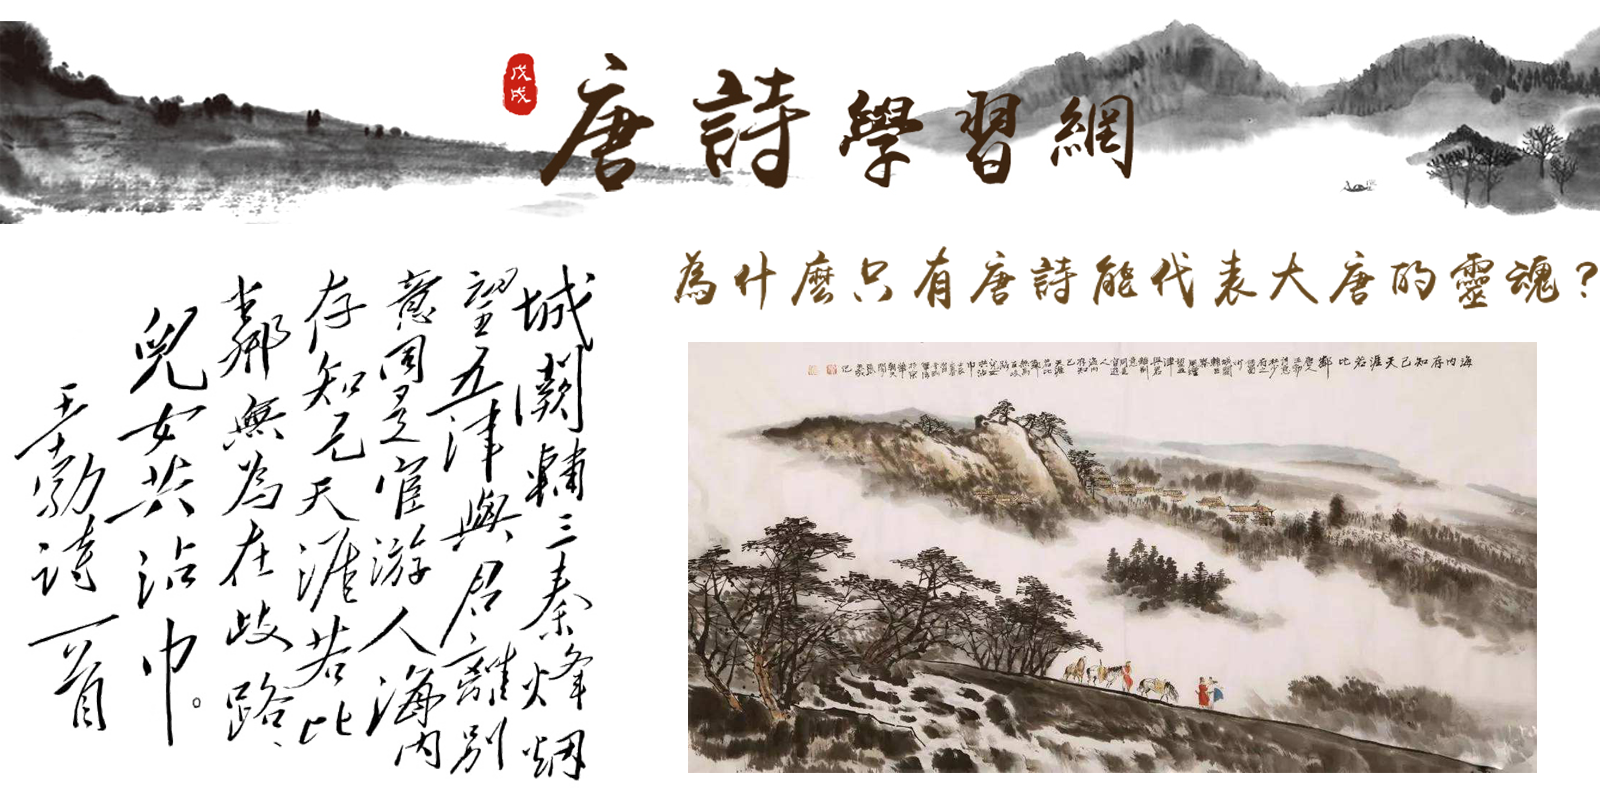 戊戌
唐詩學習網
為什麼只有唐詩能代表大唐的靈魂？
城闕輔三秦烽烟
望五津與君離別
意同是宦游人海内
存知己天涯若比
鄰無為在歧路、
兒女共沾巾。
王勃詩一首
海内存知己天涯若比鄰